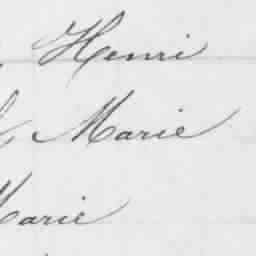 Henri
Marie
Marie